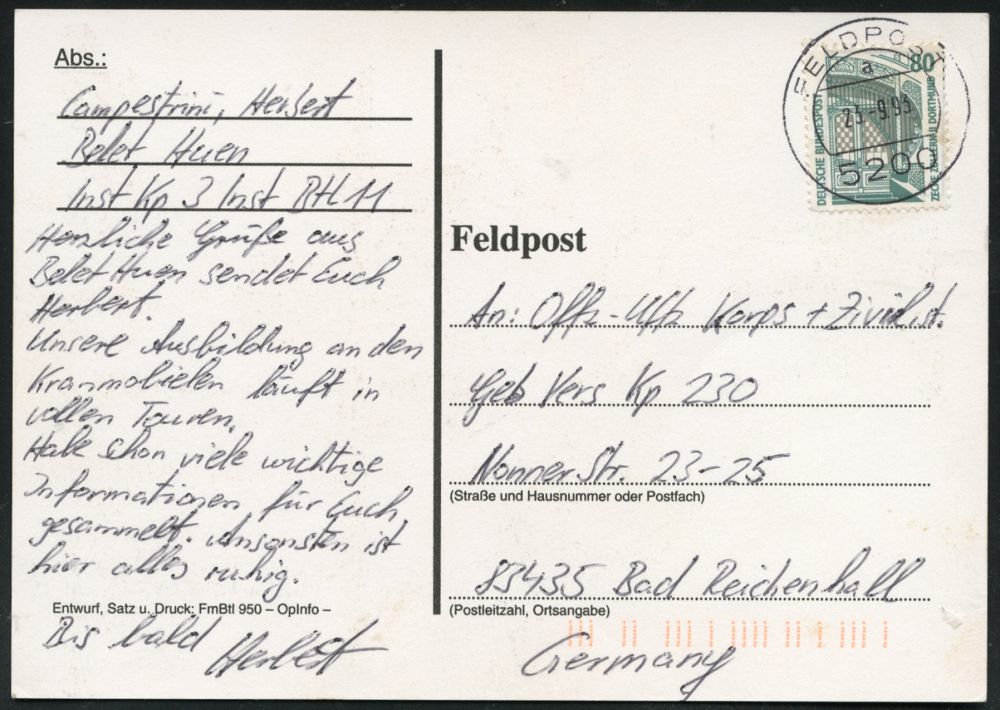 Abs.:
Campestrini, Herbert
Belet Huen
Inst Kp 3 Inst Btl 11
Herzliche Grüße aus
Belet Huen sendet Euch
Herbert.
Unsere Ausbildung an den
Kranmobielen läuft in
vollen Touren.
Habe schon viele wichtige
Informationen für Euch
gesammelt. Ansonsten ist
hier alles ruhig.
Entwurf, Satz u. Druck: FmBtl 950 – OpInfo –
Bis bald
Herbert
FELDPOST
a
23.-9.93
5200
80
DEUTSCHE BUNDESPOST
ZECHE ZOLLERN II DORTMUND
Feldpost
An: Offz-Uffz Korps + Zivilist.
Geb Vers Kp 230
Nonner Str. 23-25
(Straße und Hausnummer oder Postfach)
83435 Bad Reichenhall
(Postleitzahl, Ortsangabe)
Germany